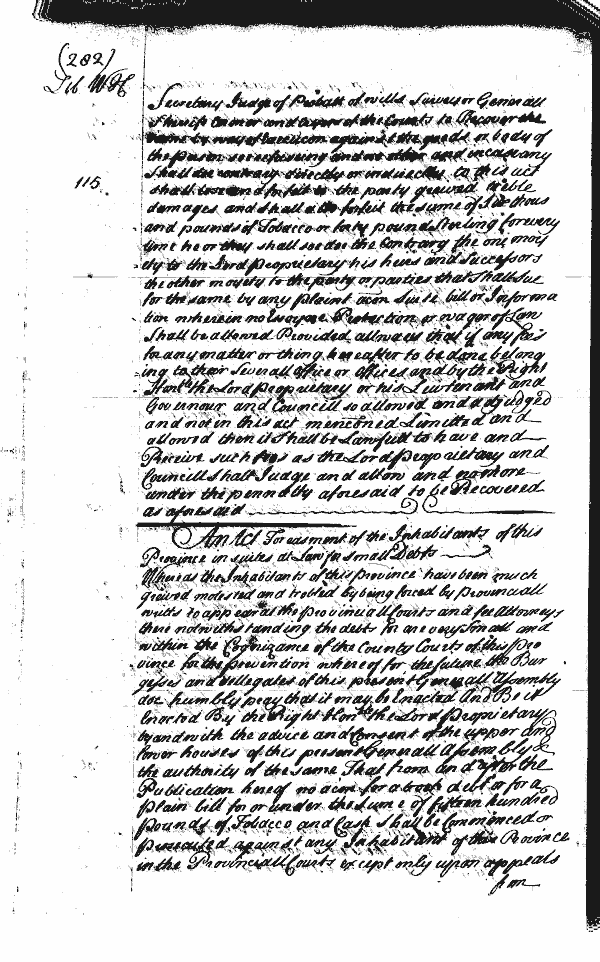 (282)
Lib WH
Secretary Judge of Probatt of wills Surveyor Generall
Sheriffe Coroner and Cryer of the Courts to Recover the
same by way of Execucon against the goods or body of
the person soe refuseing and not other and in case any
shall doe contrary directly or indirectly to this act
115.
shall and forfeit to the party greived treble
damages and shall also forfeit the sume of thous
and pounds of Tobacco or forty pounds Sterling for every
time he or they shall soe doe the Contrary the one moie
ty to the Lord Proprietary his heires and Successors
the other moyety to the party or parties that shall sue
for the same by any plaint acon suite bill or Informa
tion wherein no Essoyne Protection or wager of Law
Shall be allowed Provided allwaies that if any fees
for any matter or thing hereafter to be done belong
ing to their Severall office or offices and by the Right
Honble the Lord Proprietary or his Lieutenant and
Governour and Councill so allowed and adjudged
and not in this act mencioned Limitted and
allowed then it Shall be Lawfull to have and
Receive such fees as the Lord Proprietary and
Councill shall Judge and allow and no more
under the pennalty aforesaid to be Recovered
as aforesaid
An Act For easment of the Inhabitants of this
Province in suites at Law for small Debts
Whereas the Inhabitants of this Province have been much
greived molested and trobled by being forced by Provinciall
writts to appear at the Provinciall Courts and fee Attorneys
there notwithstanding the debts for are very Small and
within the Cognizance of the County Courts of this Pro
vince for the prevention whereof for the future the Bur
gesses and dellegates of this present Generall Assembly
doe humbly pray that it may be Enacted And Be it
Enacted By the Right Honble the Lord Proprietary
by and with the advice and Consent of the upper and
lower houses of this present Generall Assembly &
the authority of the same That from and after the
Publication hereof no acon for a book debt or for a
plain bill for or under the sume of fifteen hundred
pounds of Tobacco and Cask shall be Commenced or
prosecuted against any Inhabitant of this Province
in the Provinciall Courts except only upon appeals
from